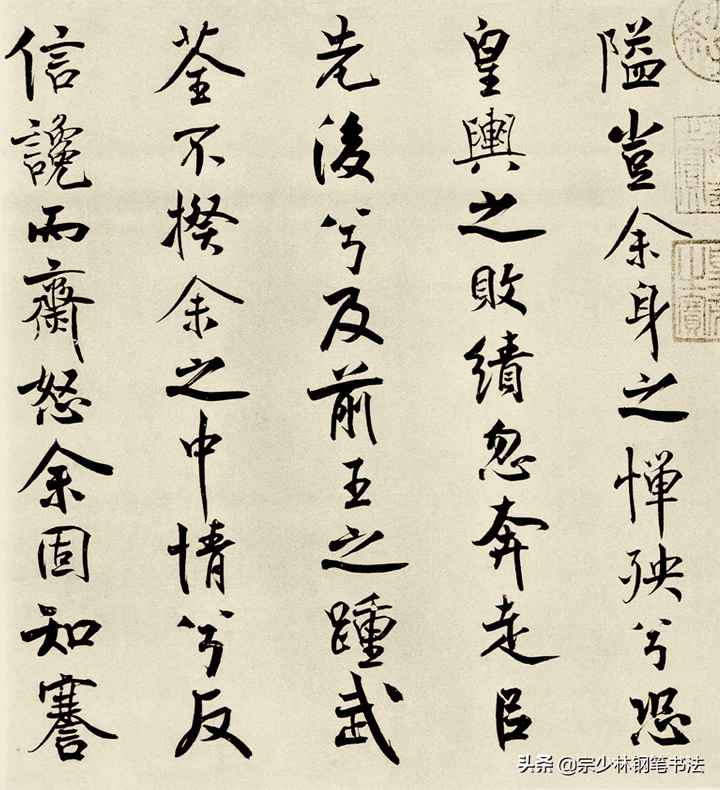 隘豈余身之憚殃兮恐
皇輿之敗績忽奔走㠯
先後兮及前王之踵武
荃不揆余之中情兮反
信讒而齋怒余固知謇
头条 @宗少林钢笔书法